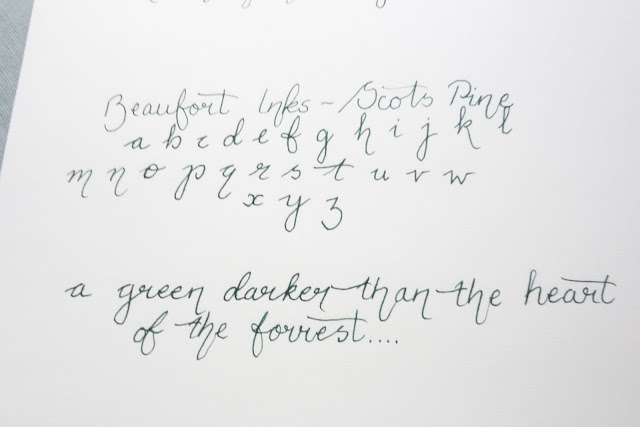 Beaufort Inks - Scots Pine
a b c d e f g h i j k l
m n o p q r s t u v w
x y z
a green darker than the heart
of the forrest....